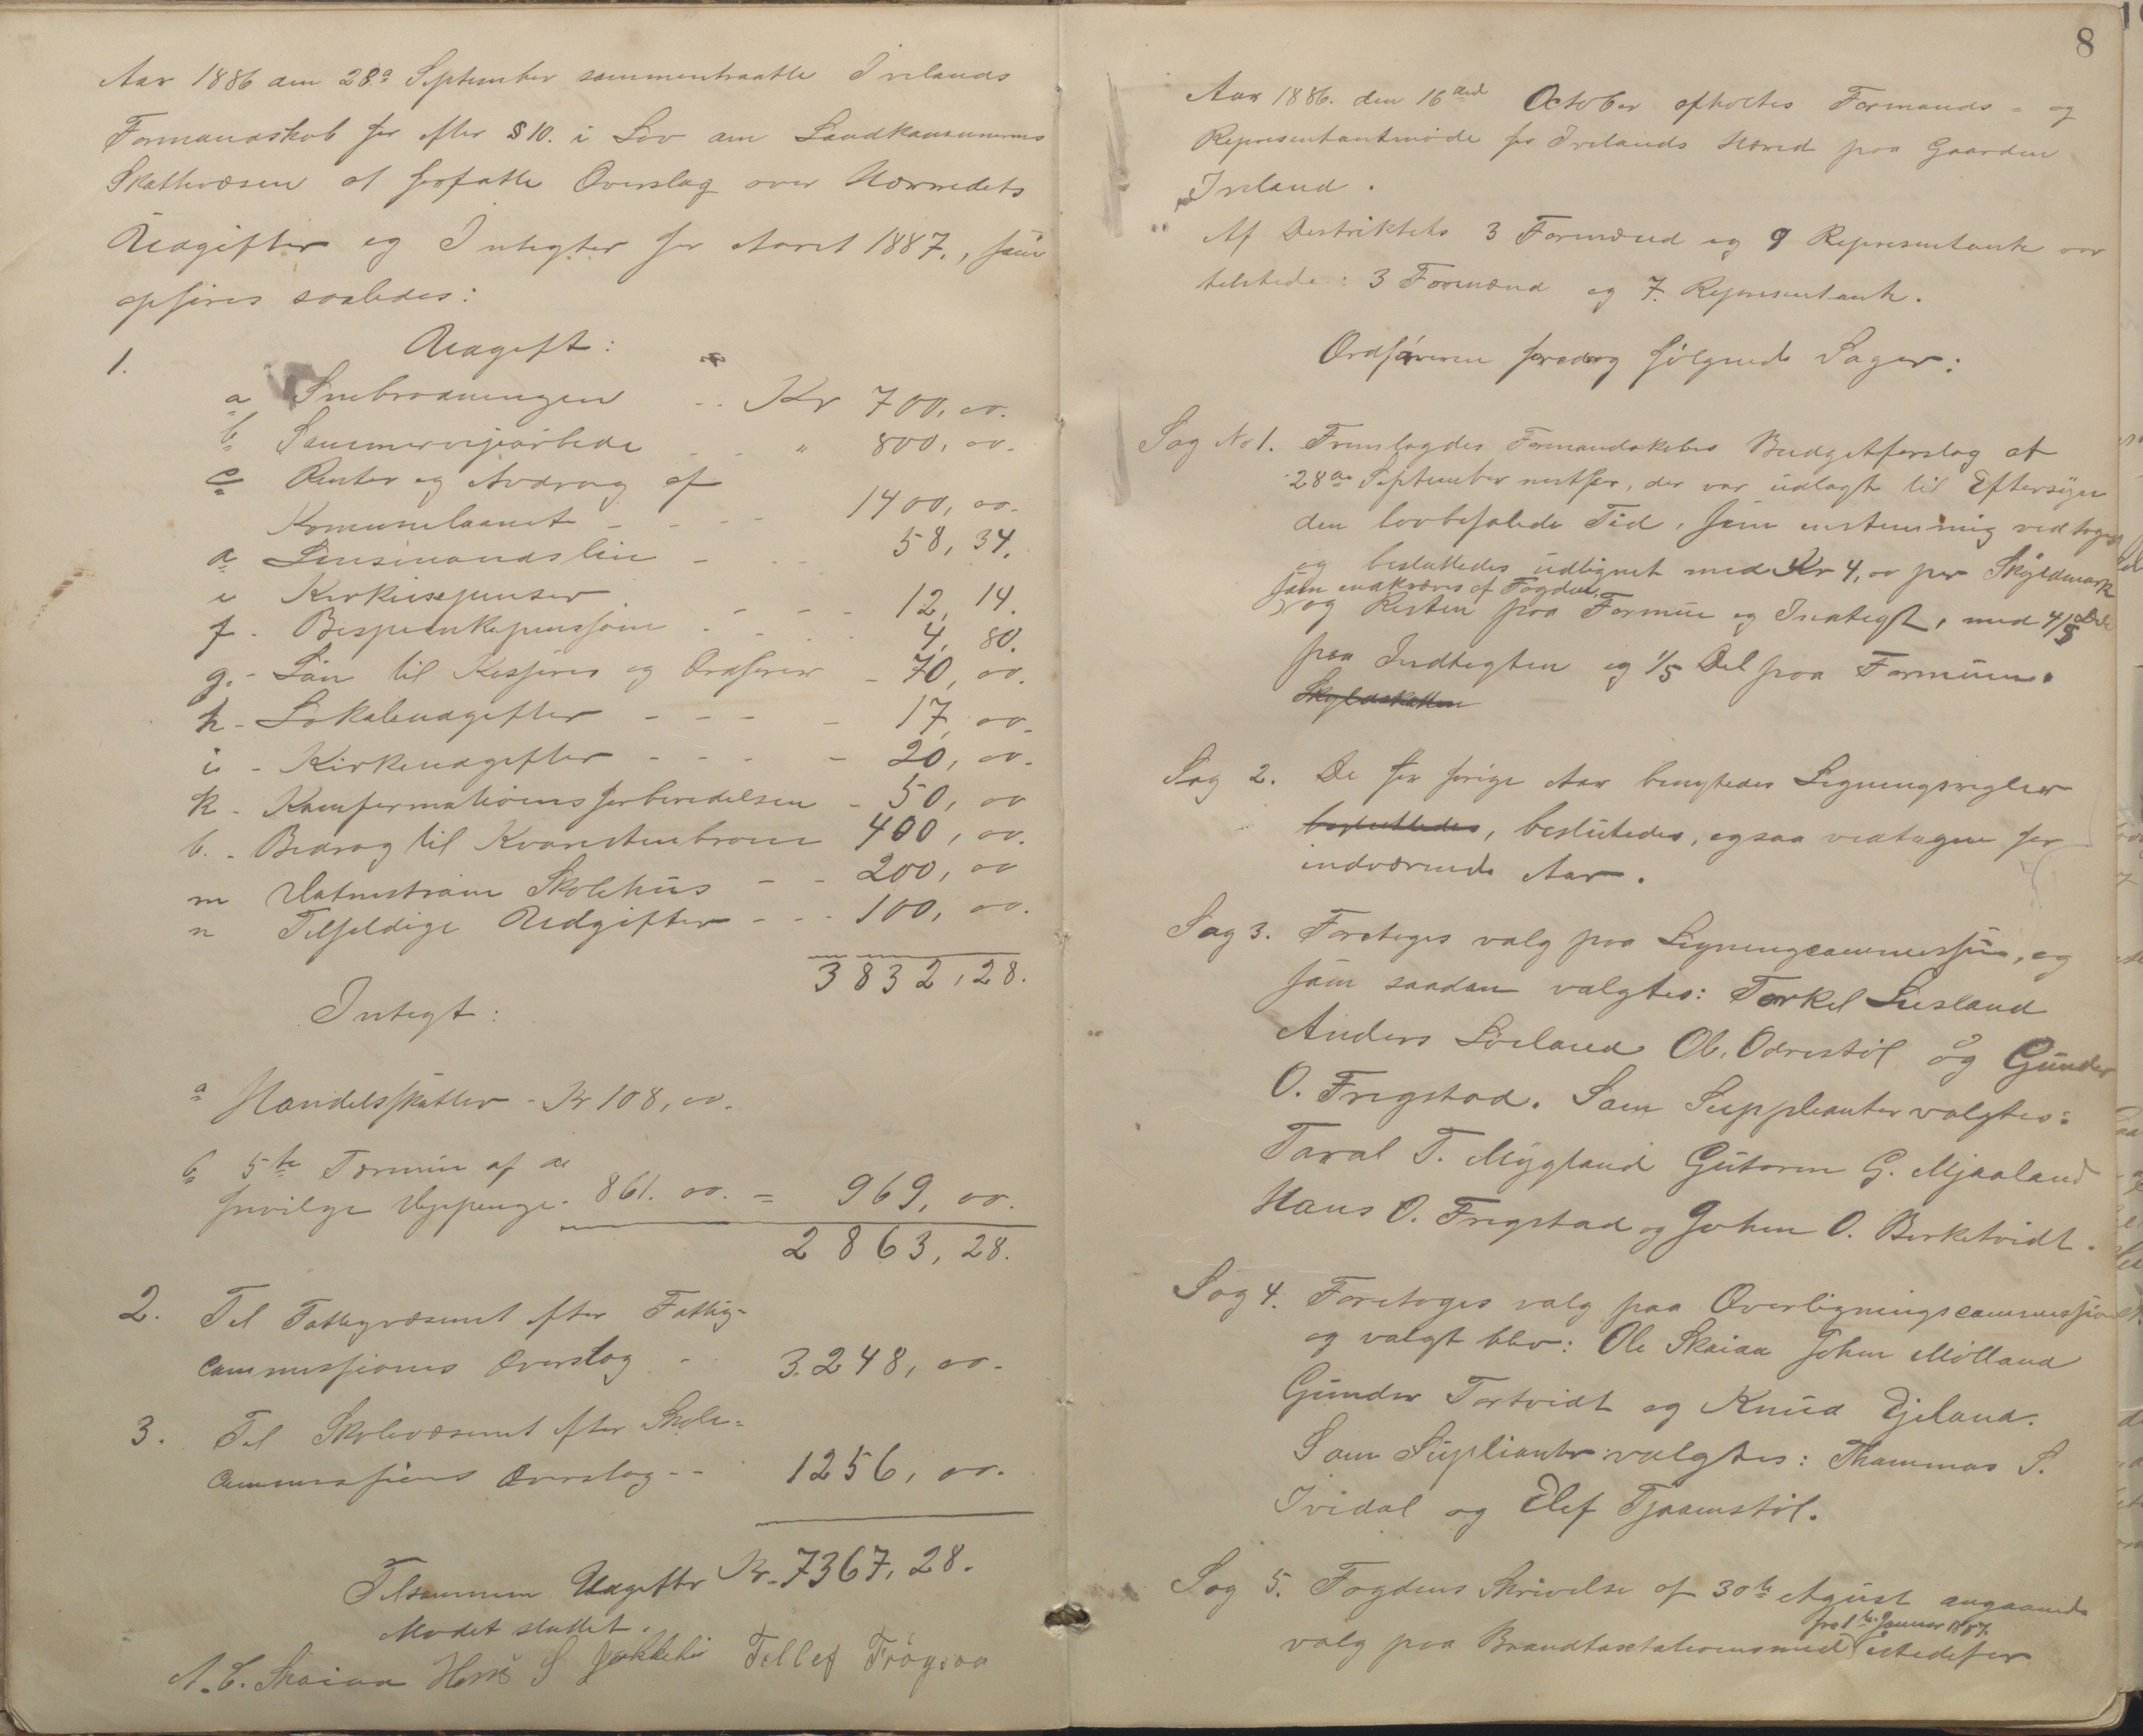 Aar 1886 den 28de September sammentraatte Ivelands
Formandskab for efter § 10. i Lov om Landkommunernes
Skattevæsen at forfatte Overslag over Herredets
Udgifter og Integter for Aaret 1887., som
opføres saaledes:
1. Udgift:
a Snebrødningen - - Kr 700,00.
b Sommerveiarbeide - - " 800,00.
c Renter og Avdrag af
Kommunelaanet - - - 1400,00.
d Lensmandsløn - - - 58,34.
e - - - 12,14.
f - - - - 4,80.
g. - Løn til Kasserer og Ordfører - 70,00.
h - Lokaleudgifter - - - - 17,00.
i - Kirkeudgifter - - - - 20,00.
k - Konfermationsforberedelsen - 50,00
l. - Bedrag til 400,00.
m Vatnestrøm Skolehus - - 200,00
n Tilfeldige Udgifter - - - 100,00.
3832,28.
Integt:
a Handelsskatter - Kr 108,00.
b 5te Termin af de
frivilge Vejpenge. 861.00. = 969,00.
2863,28.
2. Til Fattigvæsenet efter Fattig-
commissionens Overslag - - 3.248,00.
3. Til Skolevæsenet efter Skole-
commissions Overslag - - 1256,00.
Tilsammen Udgifter Kr. 7367,28.
Mødet sluttet.
Skaiaa S Tellef Frøysaa
8
Aar 1886. den 16de October afholtes Formands- og
Representantmøde for Ivelands Hered paa Gaarden
Iveland.
Af Destriktets 3 Formænd og 9 Representante var
tilstede: 3 Formænd og 7. Representante.
Ordføreren foredrog følgende Sager:
Sag No 1. Fremlagdes Formandskabes Budgetforslag af
28de September nestfor, der var udlagt til Eftersyn
den lovbefalede Tid, som enstemmig vedtoges
og besluttedes udlignet med Kr 4,00 per Skyldmark
som indkræves af Fogden
og Resten paa Formue og Indtegt, med 4/5 Del
paa Indtegten og 1/5 Del paa Formuen.
Skyldskatten
Sag 2. De for forige Aar benyttedes Ligningsregler
besluttedes, beslutedes, ogsaa vedtagne for
indværende Aar.
Sag 3. Foretoges valg paa Ligningscommission, og
som saadan valgtes: Torkel Liesland
Anders Løeland Ol. Odrestøl og Gunder
O. Frigstad. Som Supplianter valgtes:
Taral T. Mygland Gutorm G. Mjaaland
Hans O. Frigstad og John O. Berketvidt.
Sag 4. Foretoges valg paa Overligningscommission
og valgt blev: Ole Skaiaa John Mølland
Gunder Tortvidt og Knud Ejeland.
Som Suplianter valgtes: Thommas S.
Ividal og Elef Tjaamstøl.
Sag 5. Fogdens Skrivelse af 30te Agust angaaende
fra 1te Januar 1887.
valg paa Brandtaxtationsmend istedefor